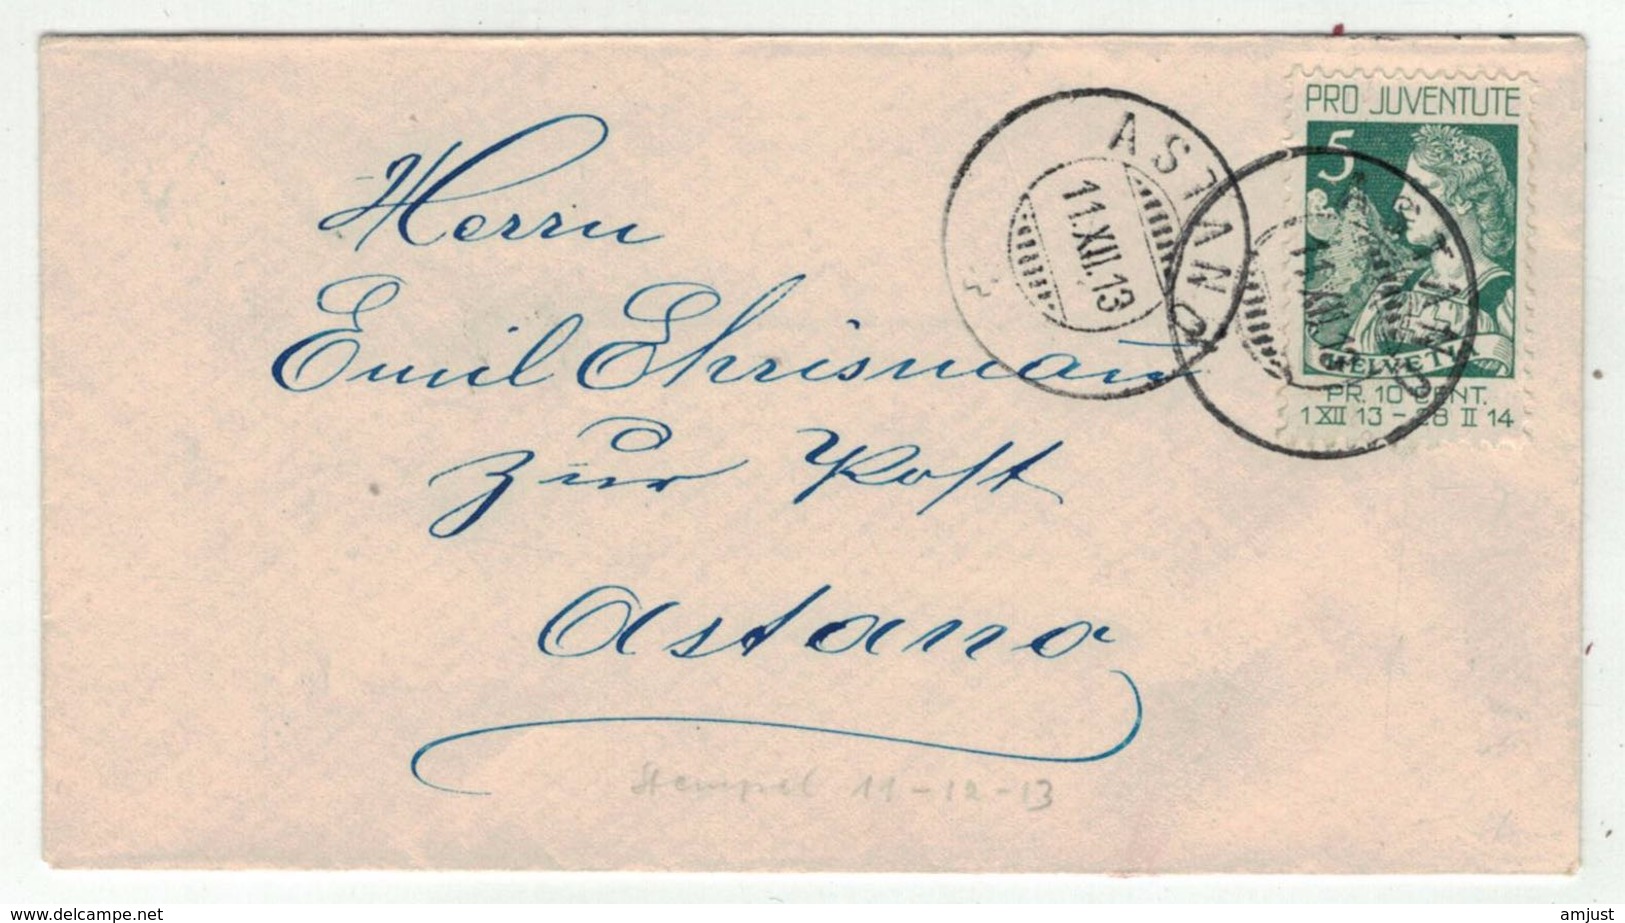 PRO JUVENTUTE
5
HELVETIA
PR. 10 CENT.
1 XII 13 - 28 II 14
ASTANO
11.XII.13
ASTANO
11.XII.13
Herrn
Emil Ehrismann
zur Post
Astano
Stempel 11-12-13
www.delcampe.net
amjust